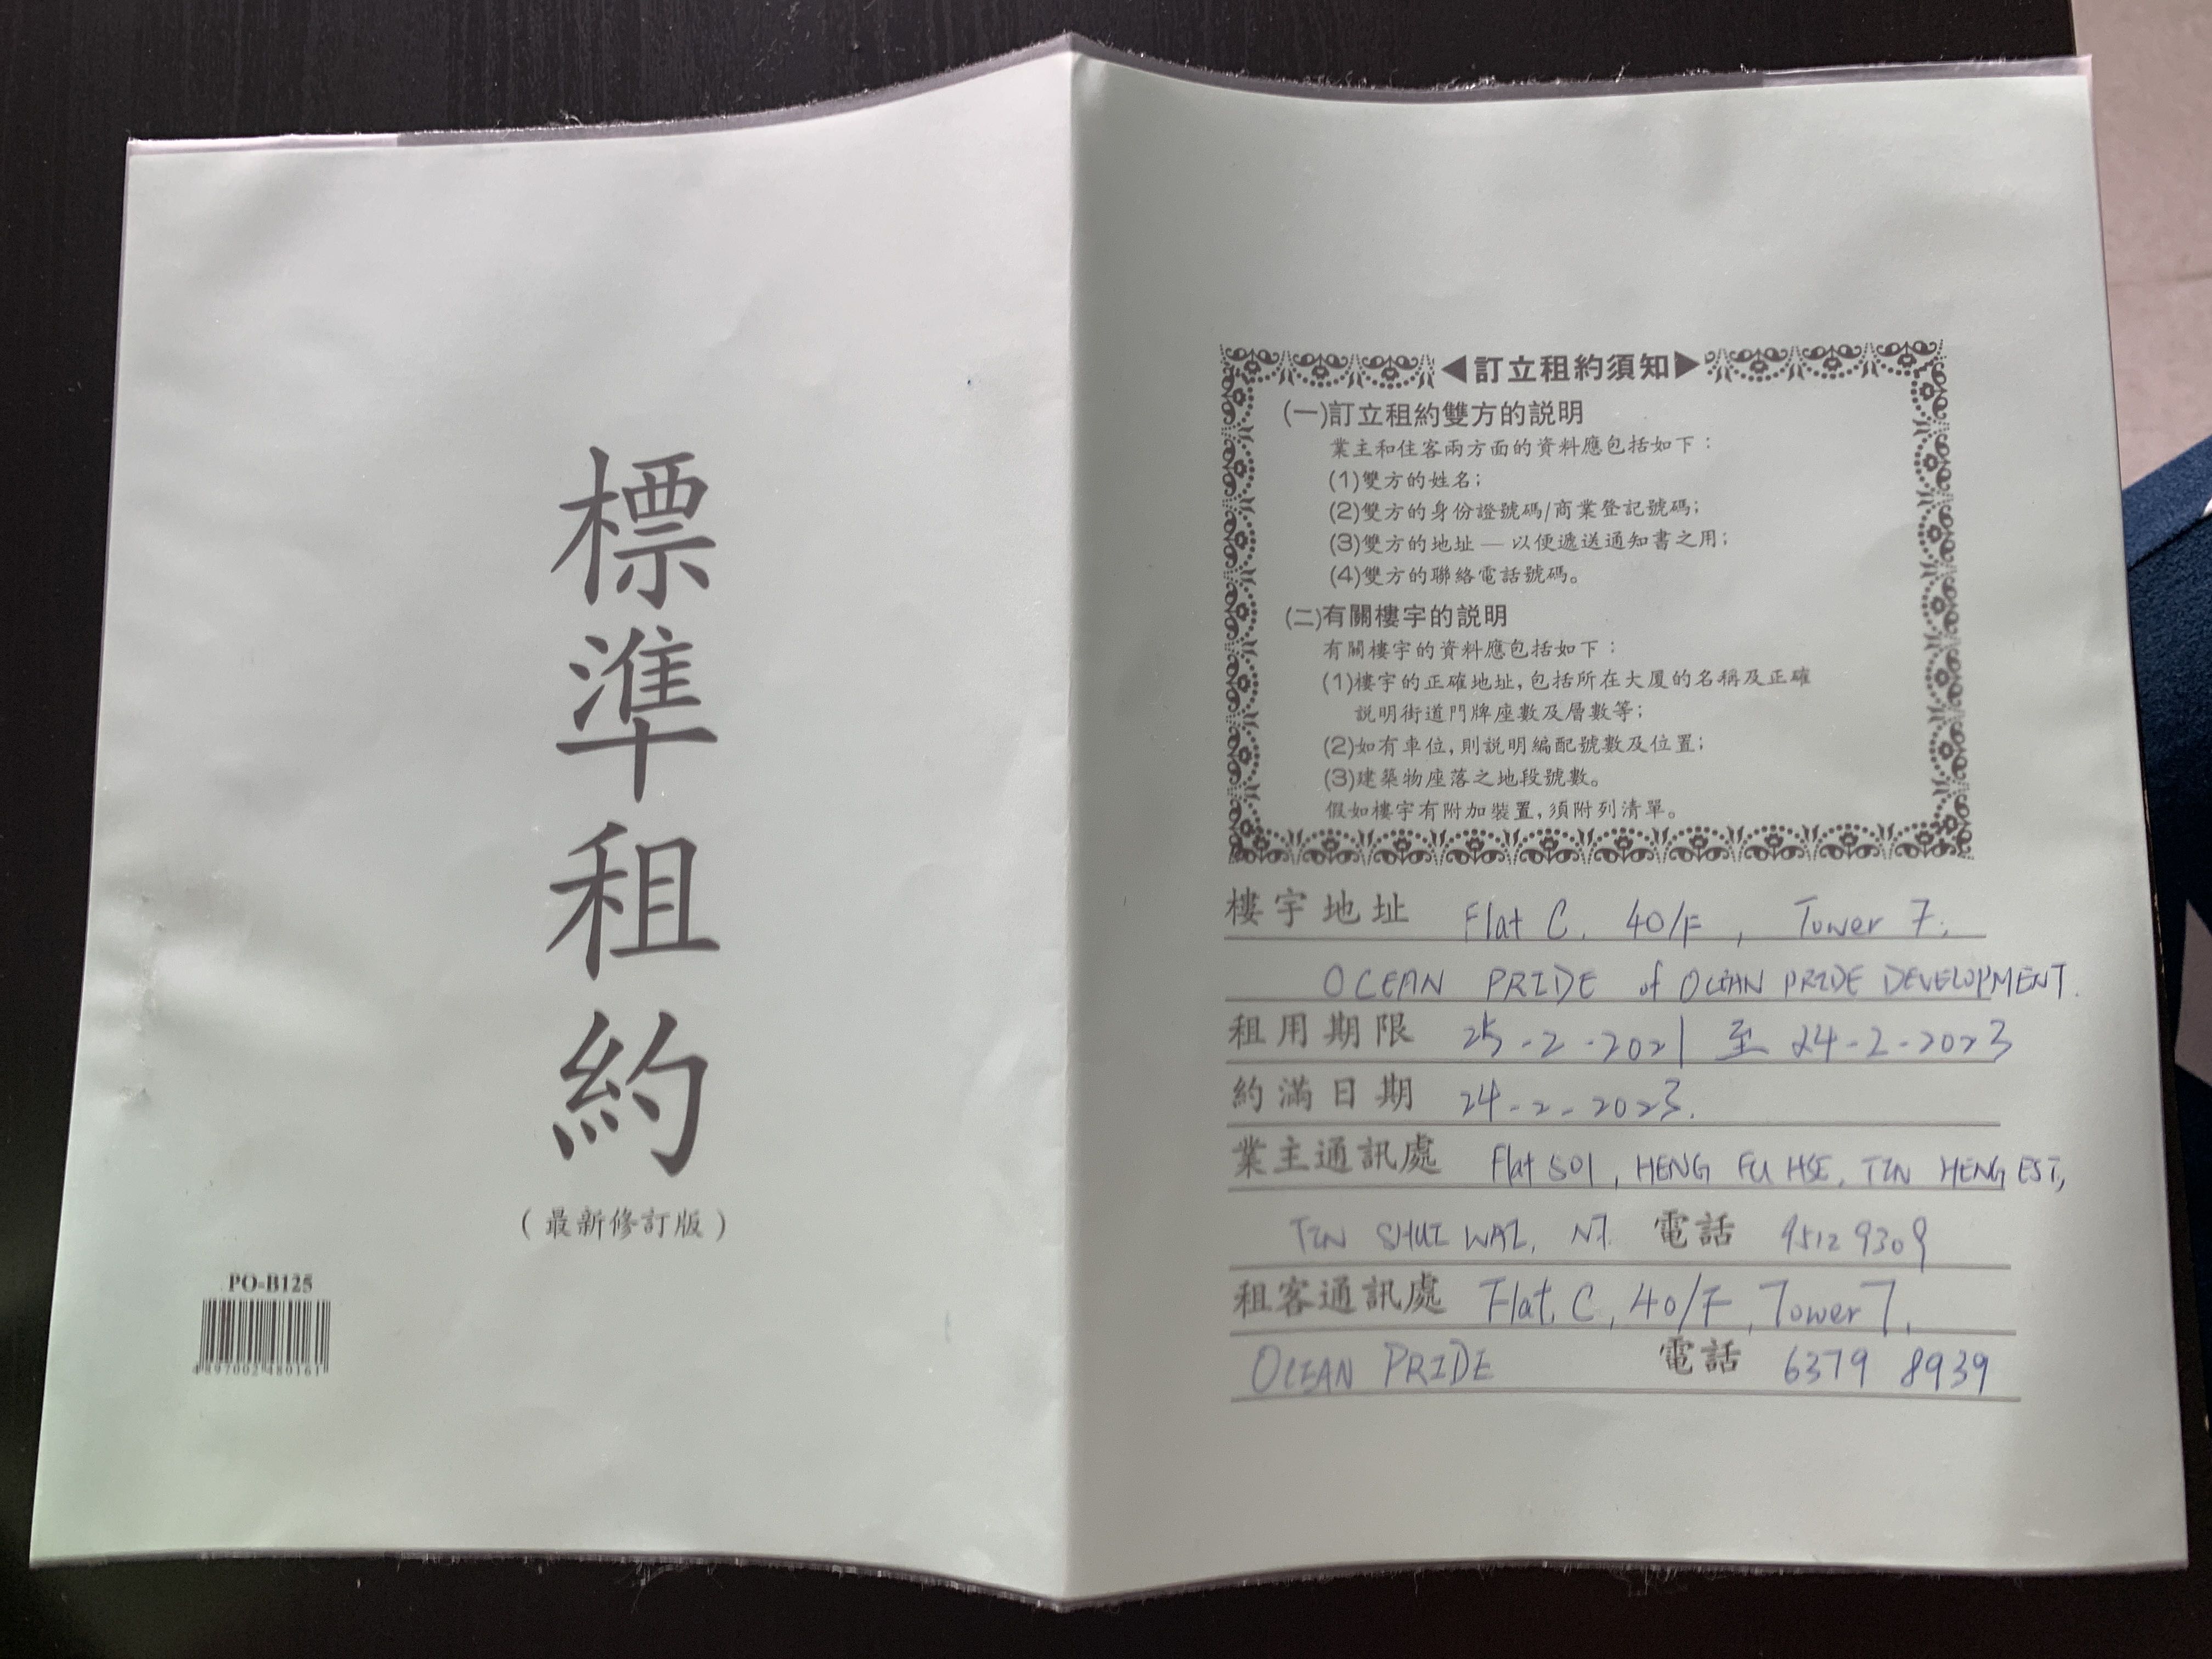 標準租約
(最新修訂版)
PO-B125
4897002480161
訂立租約須知
(一)訂立租約雙方的説明
業主和住客兩方面的資料應包括如下：
(1)雙方的姓名；
(2)雙方的身份證號碼/商業登記號碼；
(3)雙方的地址 — 以便遞送通知書之用；
(4)雙方的聯絡電話號碼。
(二)有關樓宇的説明
有關樓宇的資料應包括如下：
(1)樓宇的正確地址，包括所在大廈的名稱及正確
説明街道門牌座數及層數等；
(2)如有車位，則説明編配號數及位置；
(3)建築物座落之地段號數。
假如樓宇有附加裝置，須附列清單。
樓宇地址 Flat C, 40/F, Tower 7,
OCEAN PRIDE of OCEAN PRIDE DEVELOPMENT.
租用期限 25-2-2021 至 24-2-2023
約滿日期 24-2-2023.
業主通訊處 Flat 501, HENG FU HSE, TIN HENG EST,
TIN SHUI WAI, NT. 電話 9512 9309
租客通訊處 Flat C, 40/F, Tower 7,
OCEAN PRIDE 電話 6379 8939